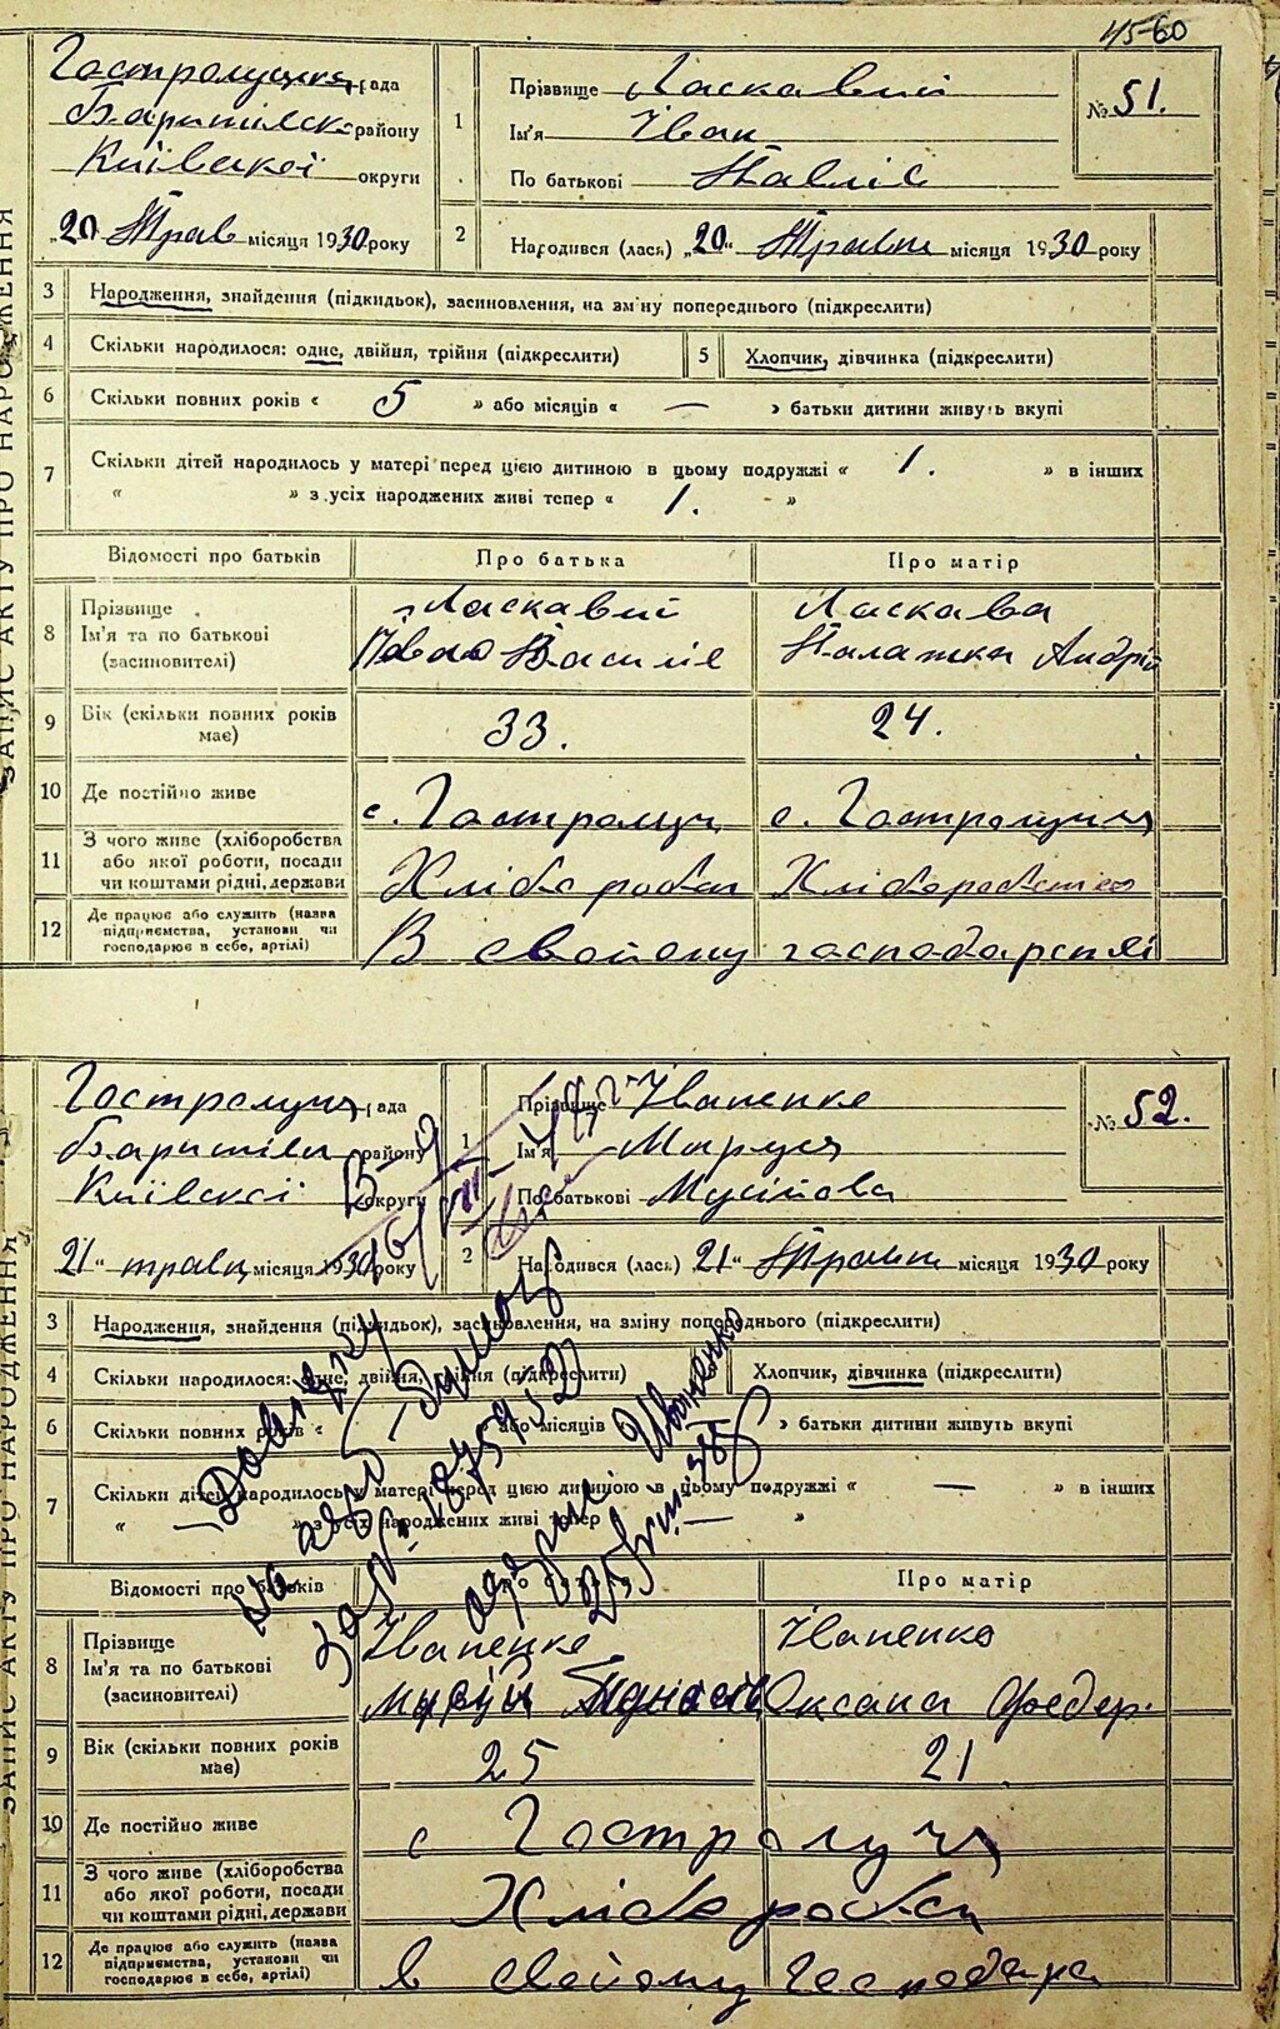 45-60
ЗАПИС АКТУ ПРО НАРОДЖЕННЯ
Гостролуцька рада
Баришілськ району
Київської округи
"20" Трав місяця 1930 року
1 Прізвище Ласкавий
Ім'я Іван
По батькові Павлів
№ 51.
2 Народився (лася) "20" Травня місяця 1930 року
3 Народження, знайдення (підкидьок), засиновлення, на зміну попереднього (підкреслити)
4 Скільки народилося: одне, двійня, трійня (підкреслити) 5 Хлопчик, дівчинка (підкреслити)
6 Скільки повних років « 5 » або місяців « — » батьки дитини живуть вкупі
7 Скільки дітей народилось у матері перед цією дитиною в цьому подружжі « 1. » в інших
« » з усіх народжених живі тепер « 1. »
Відомості про батьків Про батька Про матір
8 Прізвище Ласкавий Ласкава
Ім'я та по батькові Павло Василів Палажка Андрій
(засиновителі)
9 Вік (скільки повних років має) 33. 24.
10 Де постійно живе с. Гостролуч с. Гостролуччя
11 З чого живе (хліборобства або якої роботи, посади чи коштами рідні, держави Хлібороби Хліборобство
12 Де працює або служить (назва підприємства, установи чи господарює в себе, артілі) В своїому господарстві
ЗАПИС АКТУ ПРО НАРОДЖЕННЯ
Гостролуч рада
Баришівськ району
Київської округи
21" травн місяця 1930 року
1 Прізвище Іваненко
Ім'я Маруся
По батькові Мусійова
№ 52.
2 Народився (лась) 21" Травня місяця 1930 року
3 Народження, знайдення (підкидьок), засиновлення, на зміну попереднього (підкреслити)
4 Скільки народилося: одне, двійня, трійня (підкреслити) Хлопчик, дівчинка (підкреслити)
6 Скільки повних років « » або місяців » батьки дитини живуть вкупі
7 Скільки дітей народилось у матері перед цією дитиною в цьому подружжі « — » в інших
« » з усіх народжених живі тепер — »
Відомості про батьків Про батька Про матір
8 Прізвище Іваненко Іваненко
Ім'я та по батькові Мусій Оксана Федор.
(засиновителі)
9 Вік (скільки повних років має) 25 21
10 Де постійно живе с Гостролуччя
11 З чого живе (хліборобства або якої роботи, посади чи коштами рідні, держави Хлібороби
12 Де працює або служить (назва підприємства, установи чи господарює в себе, артілі) в своїому господар
Довідку
Іваненко